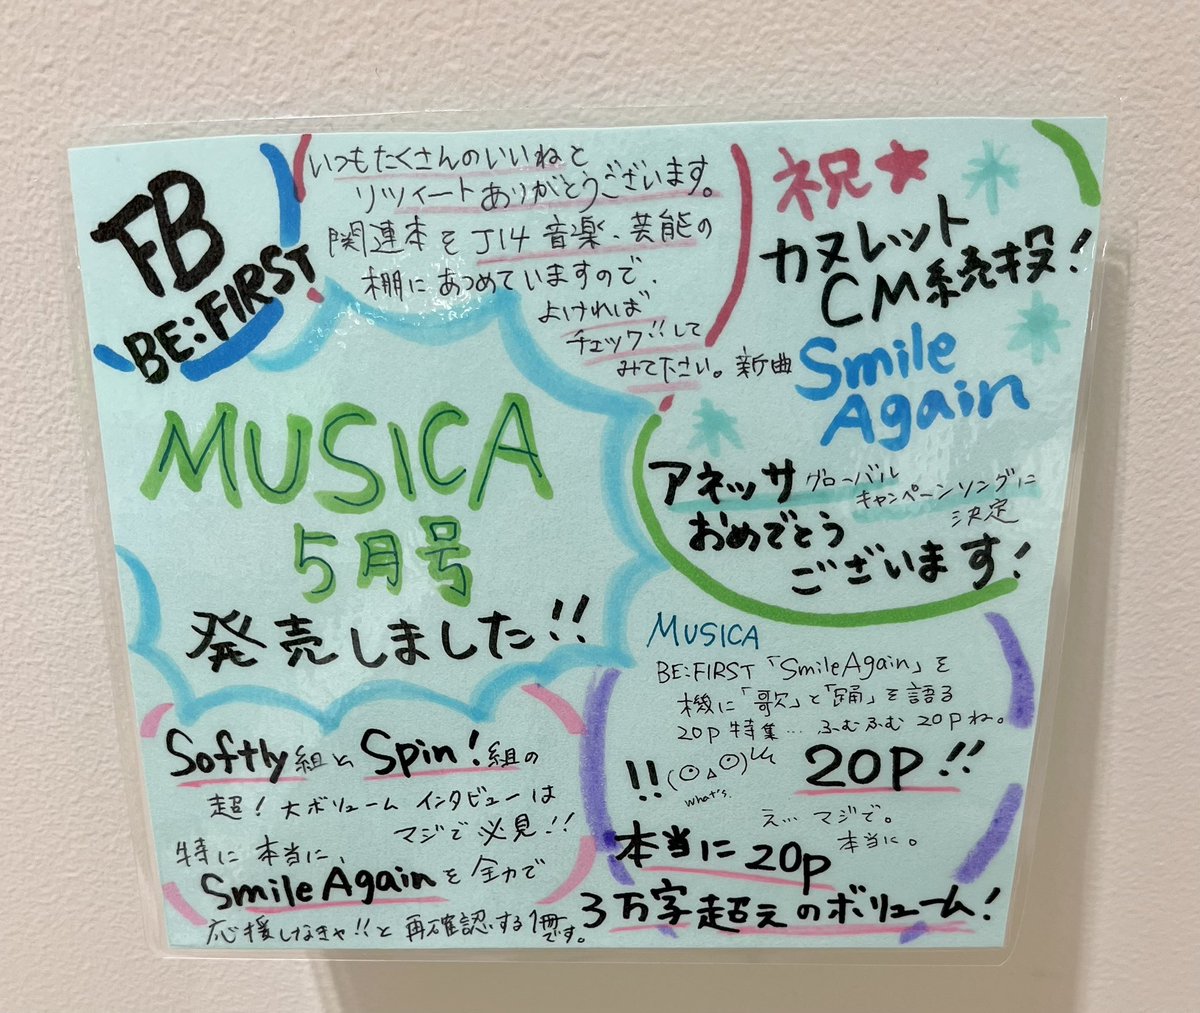 FB
BE:FIRST
いつもたくさんのいいねと
リツイートありがとうございます。
関連本をJ14 音楽、芸能の
棚にあつめていますので、
よければ
チェック!!して
みて下さい。
祝★
カヌレット
CM続投!
新曲 Smile
Again
アネッサ グローバル
キャンペーンソングに
決定
おめでとう
ございます!
MUSICA
5月号
発売しました!!
MUSICA
BE:FIRST「Smile Again」を
機に「歌」と「踊」を語る
20P 特集… ふむふむ 20Pね。
!!
what's.
20P!!
え… マジで。
本当に。
本当に 20p
3万字超えのボリューム!
Softly組と Spin!組の
超! 大ボリューム インタビューは
マジで必見!!
特に 本当に、
Smile Againを全力で
応援しなきゃ!!と再確認する1冊
です。